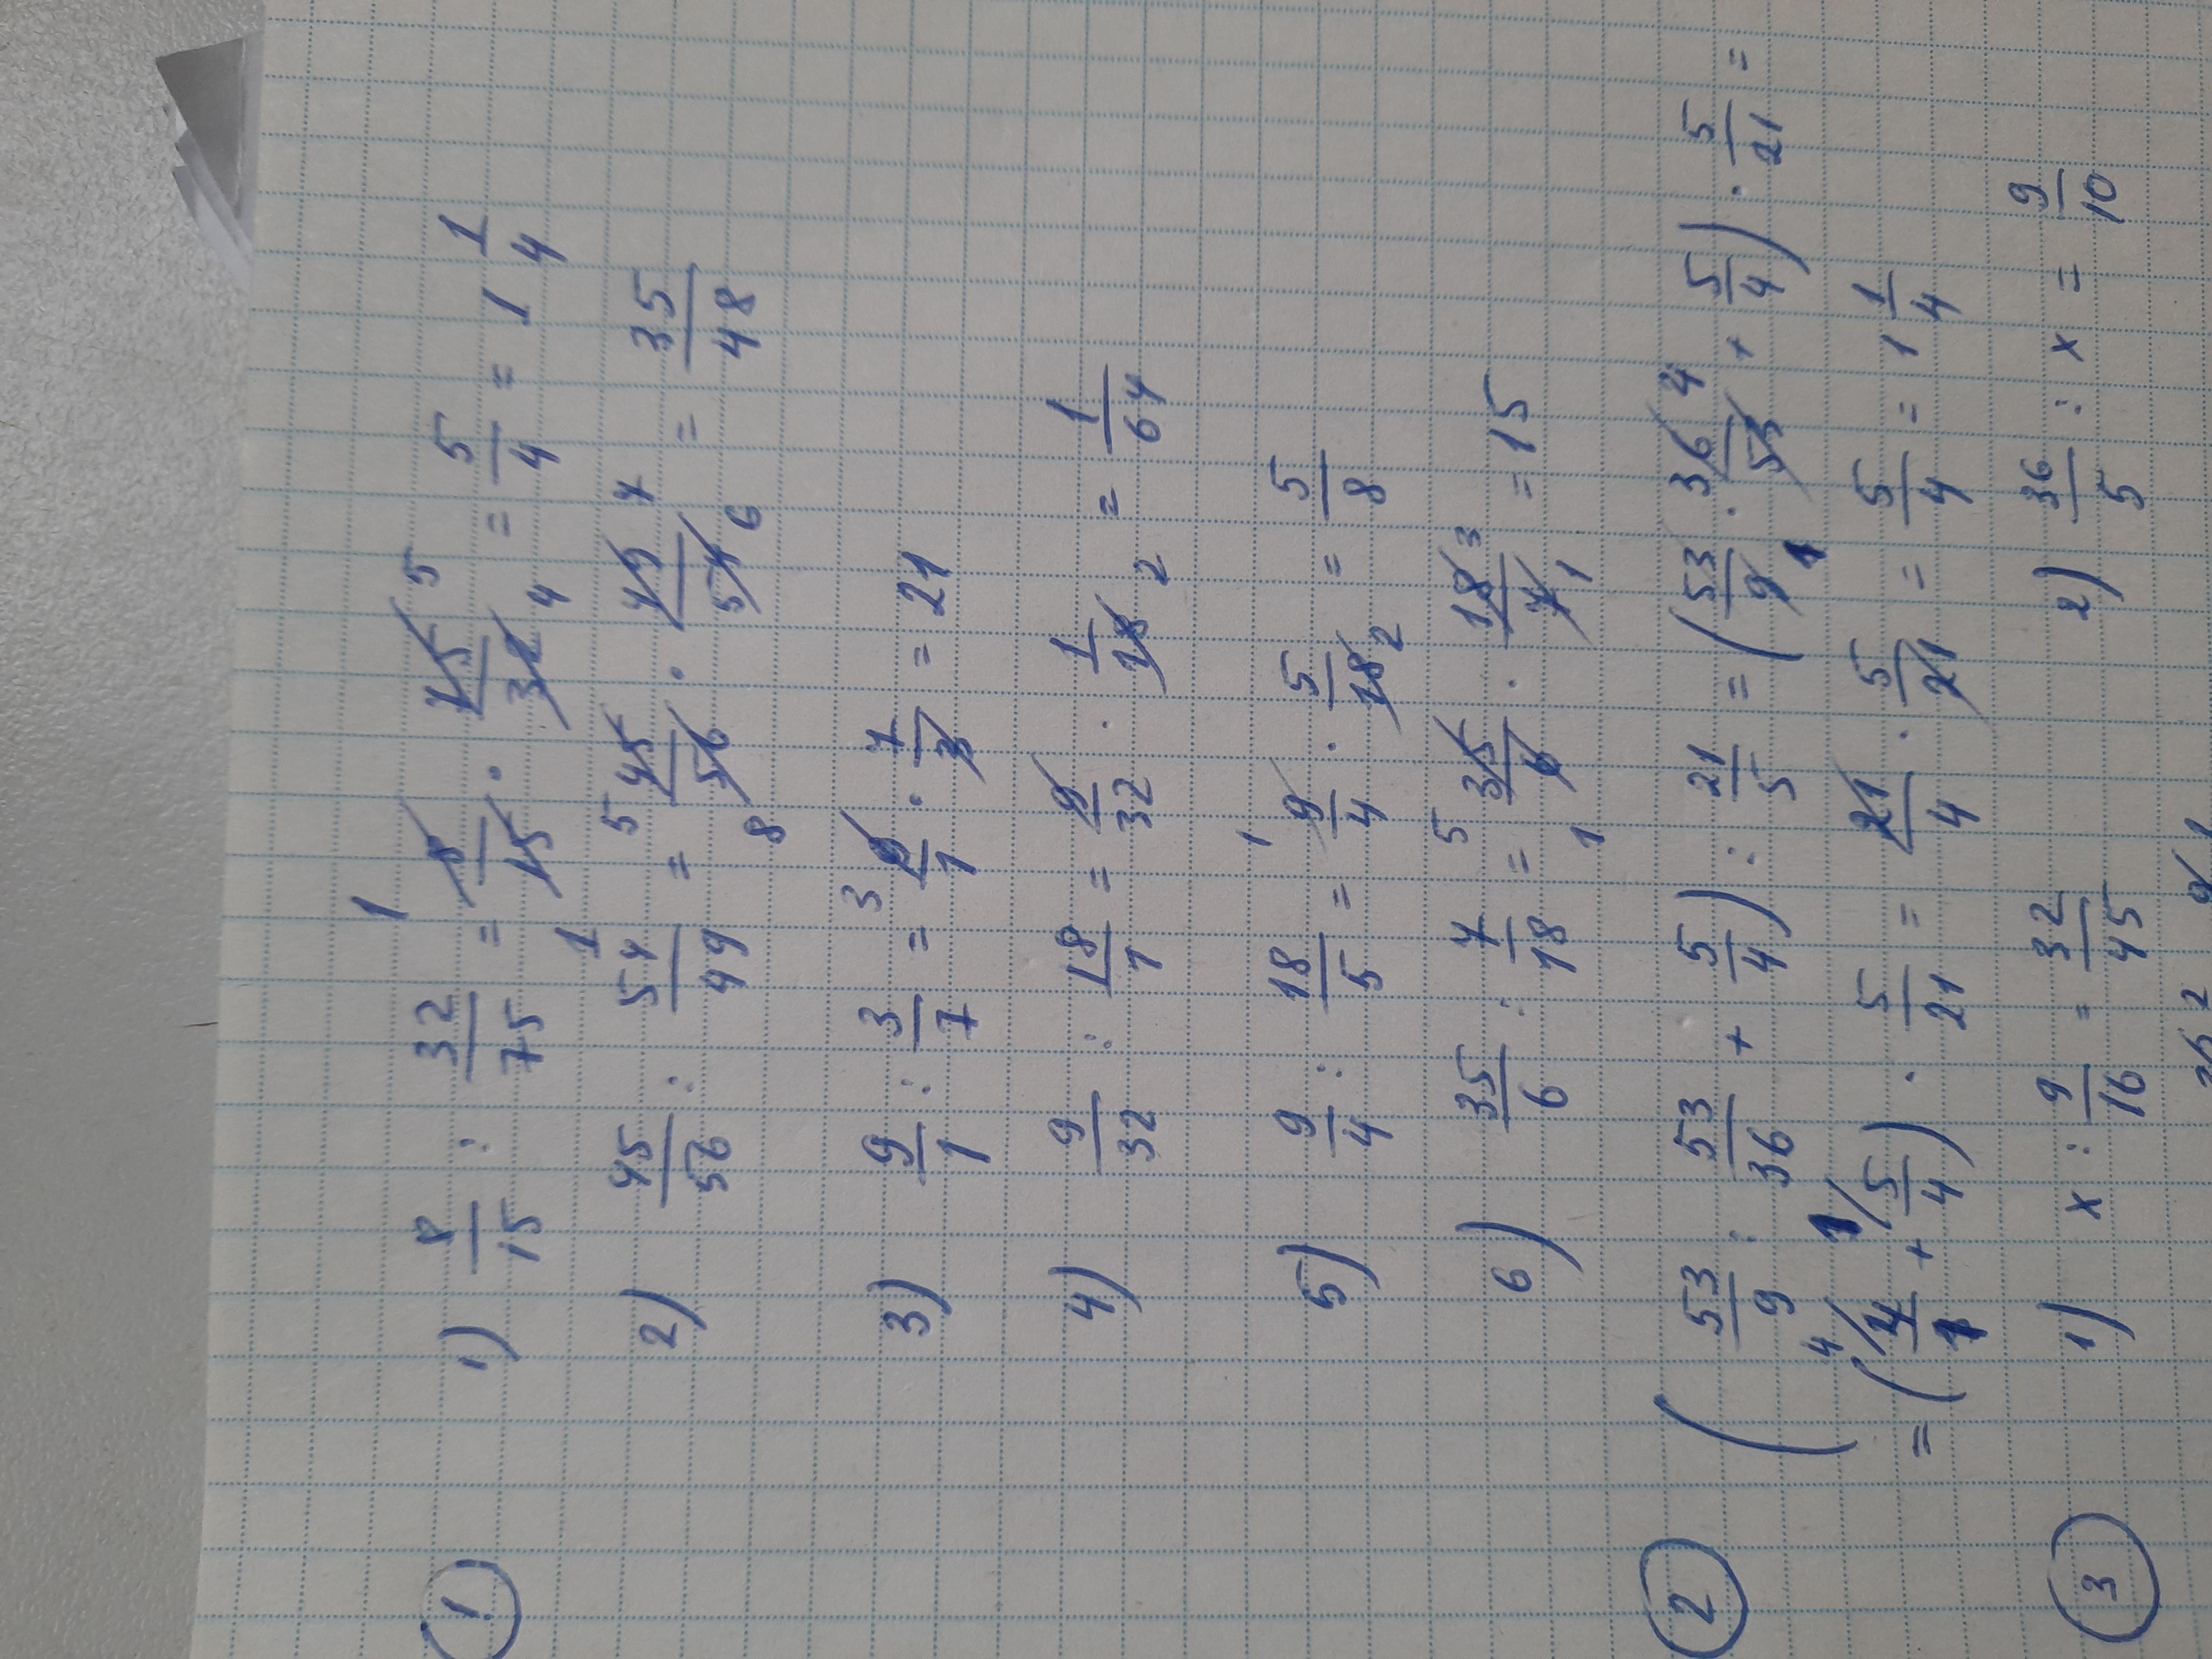 1
1) 8/15 : 32/75 = 8/15 · 75/32 = 5/4 = 1 1/4
2) 45/56 : 54/49 = 45/56 · 49/54 = 35/48
3) 9/1 : 3/7 = 9/1 · 7/3 = 21
4) 9/32 : 18/1 = 9/32 · 1/18 = 1/64
5) 9/4 : 18/5 = 9/4 · 5/18 = 5/8
6) 35/6 : 7/18 = 35/6 · 18/7 = 15
2 (53/9 : 53/36 + 5/4) : 21/5 = (53/9 · 36/53 + 5/4) · 5/21 =
= (4/1 + 5/4) · 5/21 = 21/4 · 5/21 = 5/4 = 1 1/4
3 1) x : 9/16 = 32/45 2) 36/5 : x = 9/10